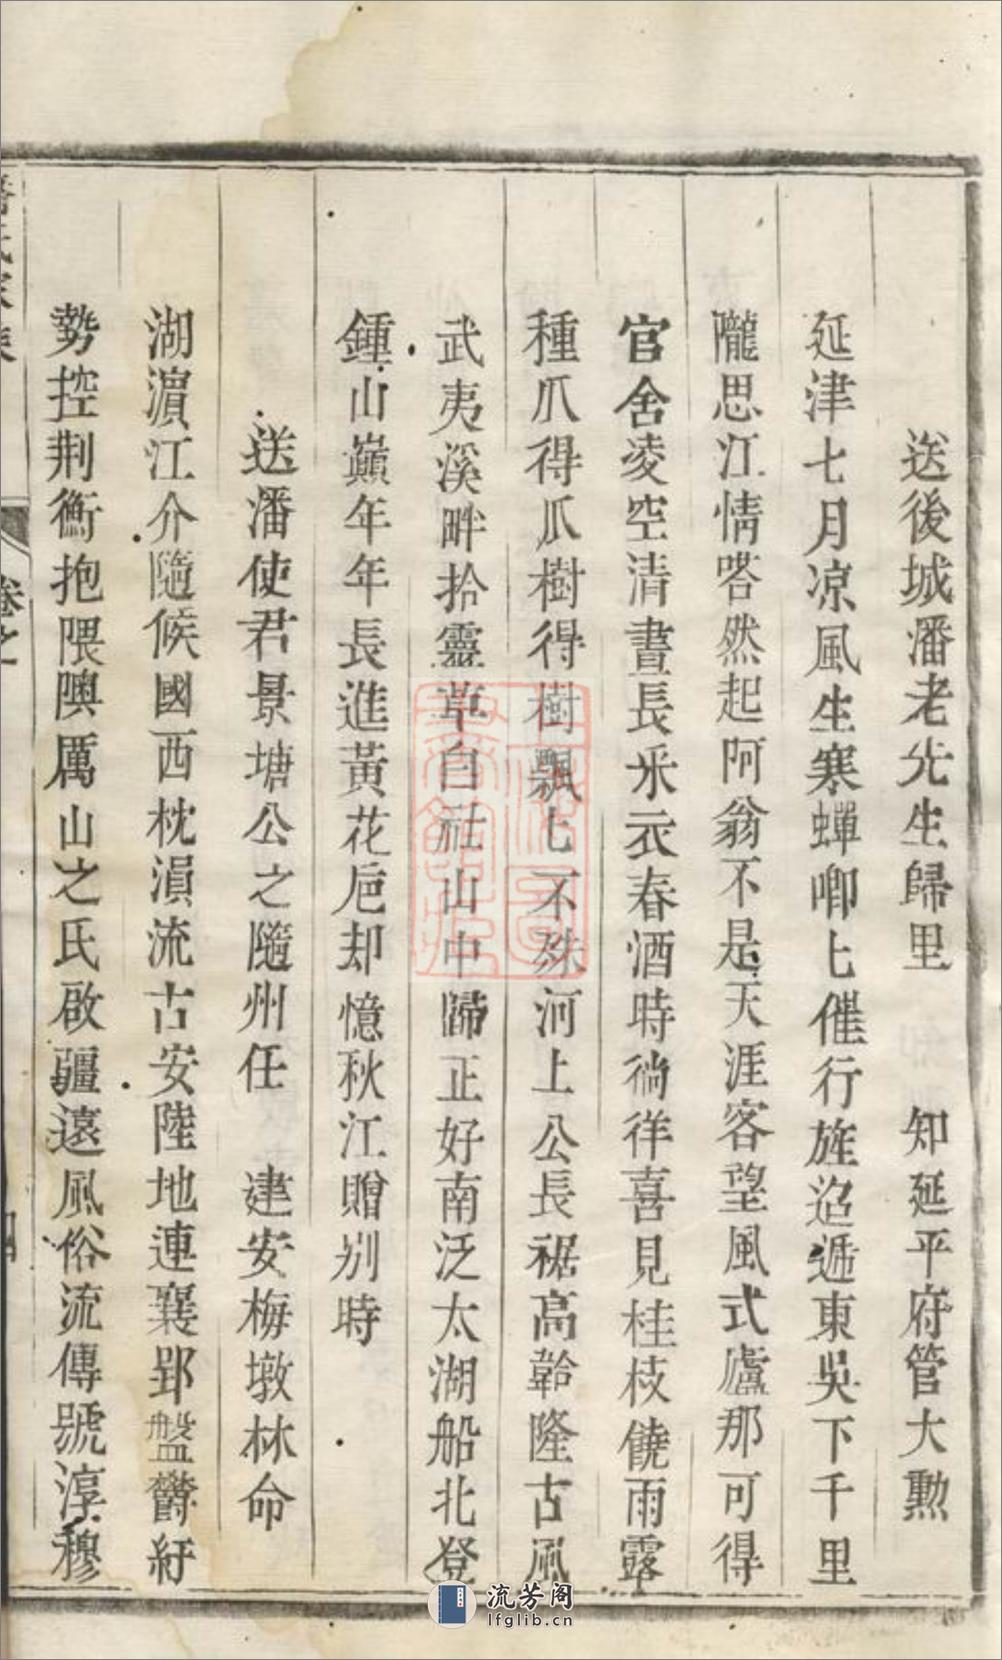 送後城潘老先生歸里　知延平府管大勲
延津七月凉風生寒蟬唧匕催行旌迢遞東吳下千里
隴思江情嗒然起阿翁不是天涯客望風式廬那可得
官舍凌空清晝長釆衣春酒時徜徉喜見桂枝饒雨露
種爪得爪樹得樹飄匕不殊河上公長裾高韐隆古風
武夷溪畔拾靈草自社山中歸正好南泛太湖船北登
鍾山巔年年長進黃花巵却憶秋江贈別時
送潘使君景塘公之隨州任　建安梅墩林命
湖濵江介隨候國西枕溳流古安陸地連襄郢盤欝紆
勢控荆衡抱隈隩厲山之氏啟疆遠風俗流傳號淳穆
卷之
流芳阁
lfglib.cn